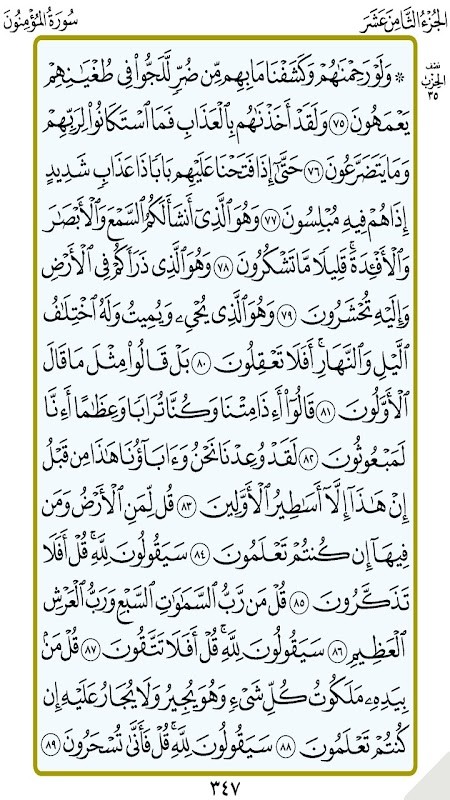 الجزء الثامن عشر
سورة المؤمنون
نصف
الحزب
٣٥
۞ وَلَوْ رَحِمْنَٰهُمْ وَكَشَفْنَا مَا بِهِم مِّن ضُرٍّ لَّلَجُّوا۟ فِى طُغْيَٰنِهِمْ
يَعْمَهُونَ ٧٥ وَلَقَدْ أَخَذْنَٰهُم بِٱلْعَذَابِ فَمَا ٱسْتَكَانُوا۟ لِرَبِّهِمْ
وَمَا يَتَضَرَّعُونَ ٧٦ حَتَّىٰٓ إِذَا فَتَحْنَا عَلَيْهِم بَابًا ذَا عَذَابٍ شَدِيدٍ
إِذَا هُمْ فِيهِ مُبْلِسُونَ ٧٧ وَهُوَ ٱلَّذِىٓ أَنشَأَ لَكُمُ ٱلسَّمْعَ وَٱلْأَبْصَٰرَ
وَٱلْأَفْـِٔدَةَ ۚ قَلِيلًا مَّا تَشْكُرُونَ ٧٨ وَهُوَ ٱلَّذِى ذَرَأَكُمْ فِى ٱلْأَرْضِ
وَإِلَيْهِ تُحْشَرُونَ ٧٩ وَهُوَ ٱلَّذِى يُحْىِۦ وَيُمِيتُ وَلَهُ ٱخْتِلَٰفُ
ٱلَّيْلِ وَٱلنَّهَارِ ۚ أَفَلَا تَعْقِلُونَ ٨٠ بَلْ قَالُوا۟ مِثْلَ مَا قَالَ
ٱلْأَوَّلُونَ ٨١ قَالُوٓا۟ أَءِذَا مِتْنَا وَكُنَّا تُرَابًا وَعِظَٰمًا أَءِنَّا
لَمَبْعُوثُونَ ٨٢ لَقَدْ وُعِدْنَا نَحْنُ وَءَابَآؤُنَا هَٰذَا مِن قَبْلُ
إِنْ هَٰذَآ إِلَّآ أَسَٰطِيرُ ٱلْأَوَّلِينَ ٨٣ قُل لِّمَنِ ٱلْأَرْضُ وَمَن
فِيهَآ إِن كُنتُمْ تَعْلَمُونَ ٨٤ سَيَقُولُونَ لِلَّهِ ۚ قُلْ أَفَلَا
تَذَكَّرُونَ ٨٥ قُلْ مَن رَّبُّ ٱلسَّمَٰوَٰتِ ٱلسَّبْعِ وَرَبُّ ٱلْعَرْشِ
ٱلْعَظِيمِ ٨٦ سَيَقُولُونَ لِلَّهِ ۚ قُلْ أَفَلَا تَتَّقُونَ ٨٧ قُلْ مَنۢ
بِيَدِهِۦ مَلَكُوتُ كُلِّ شَىْءٍ وَهُوَ يُجِيرُ وَلَا يُجَارُ عَلَيْهِ إِن
كُنتُمْ تَعْلَمُونَ ٨٨ سَيَقُولُونَ لِلَّهِ ۚ قُلْ فَأَنَّىٰ تُسْحَرُونَ ٨٩
٣٤٧